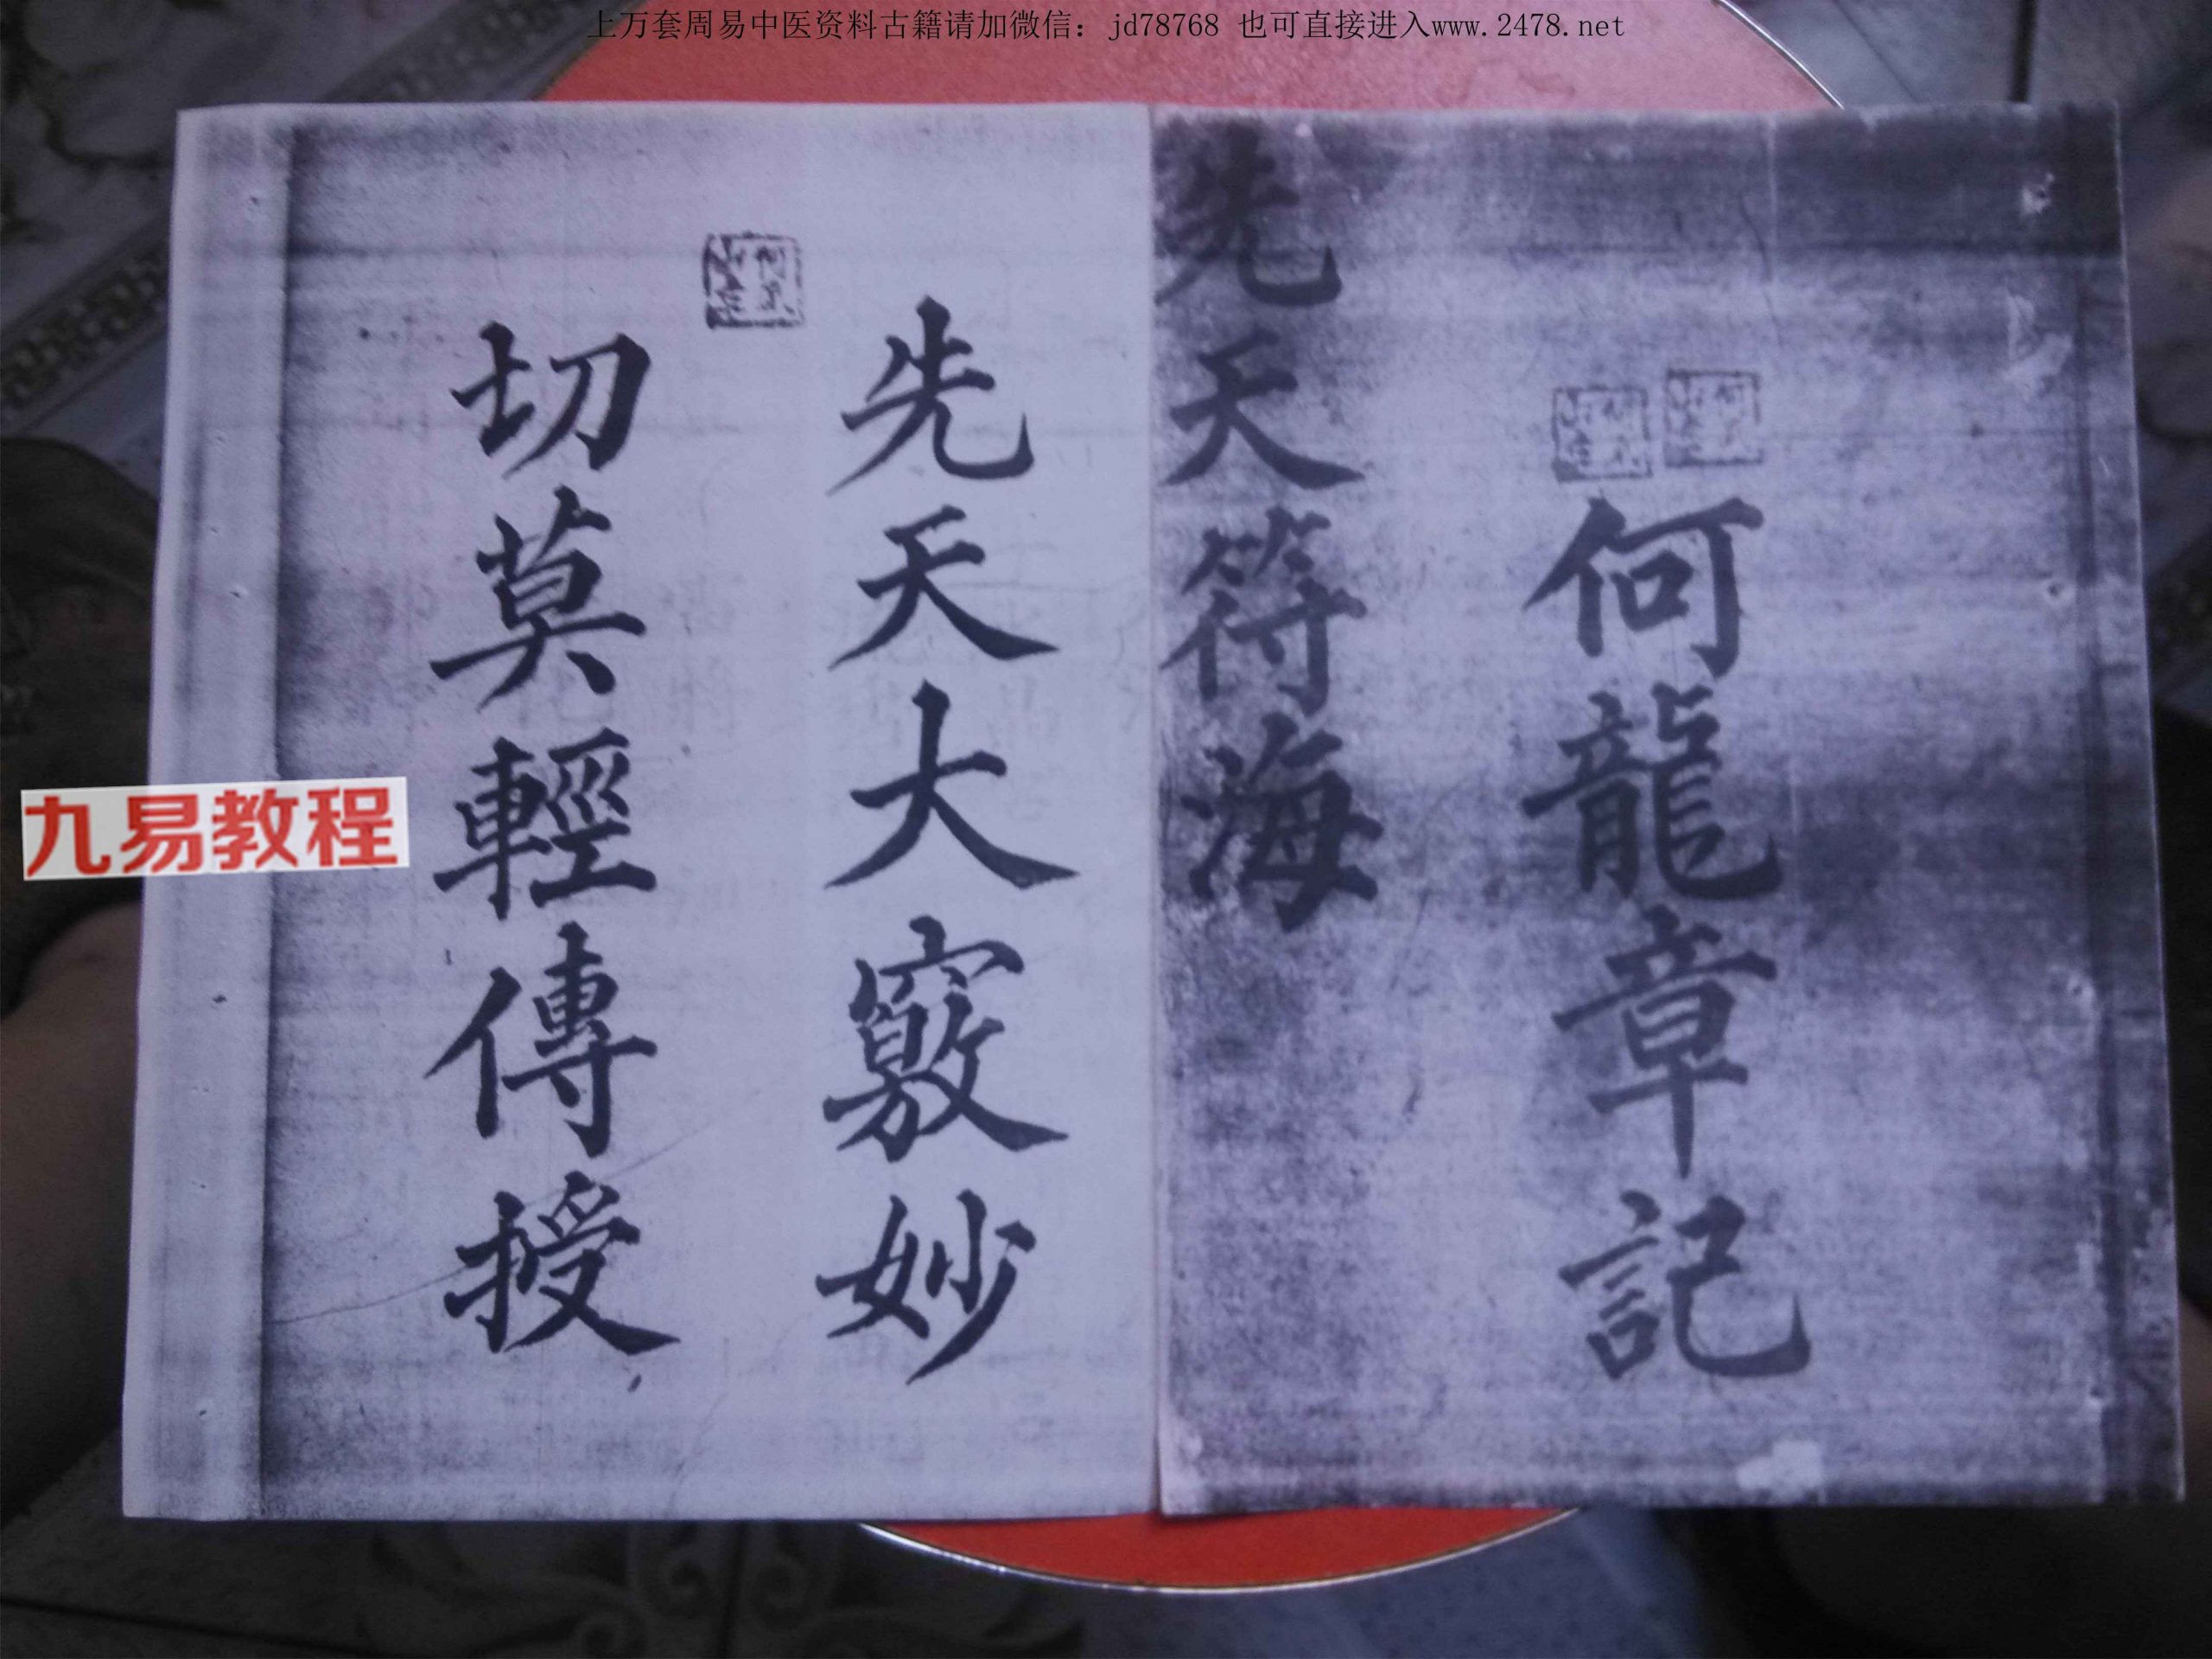 上万套周易中医资料古籍请加微信：jd78768 也可直接进入www.2478.net
何龍章記
先天符海
先天大竅妙
切莫輕傳授
九易教程